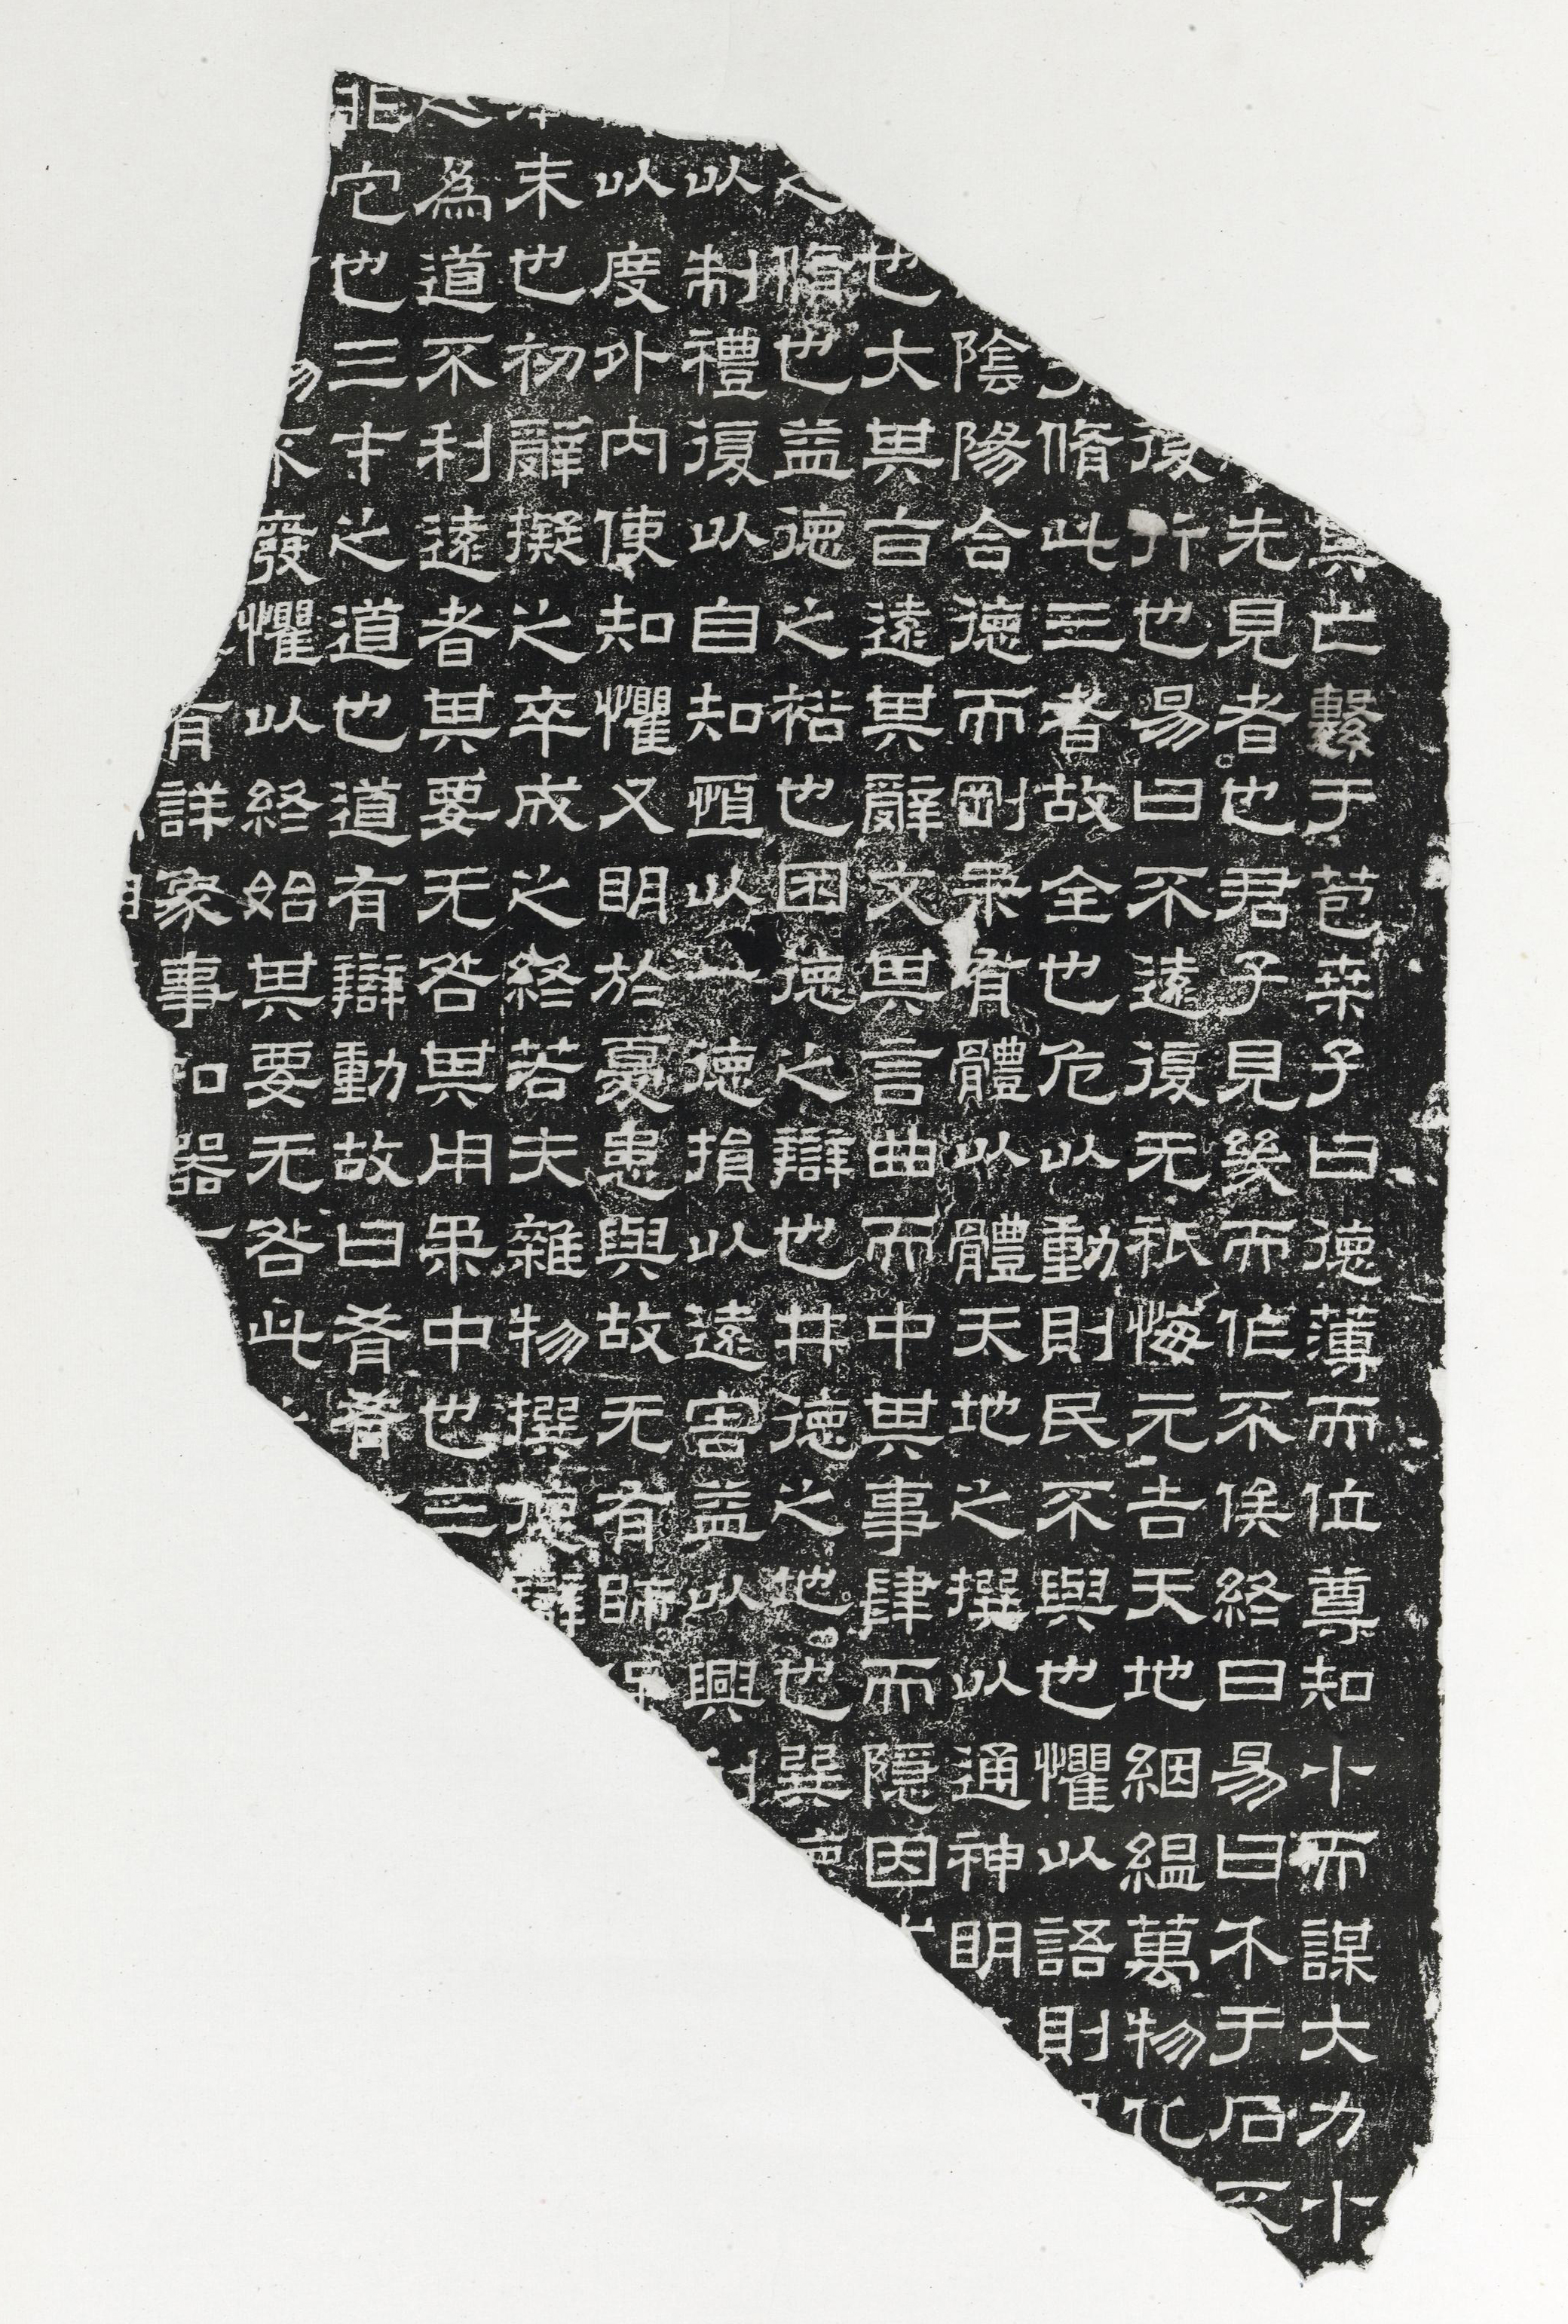 其亡繫于苞桒子曰德薄而位尊知小而謀大力小
先見者也君子見幾而作不俟終日易曰介于石不
復行也易曰不遠復无祇悔元吉天地絪縕萬物化
脩此三者故全也危以動則民不與也懼以語則
陰陽合德而剛柔有體以體天地之撰以通神明
也大其旨遠其辭文其言曲而中其事肆而隱因
之脩也益德之裕也困德之辯也井德之地也巽德
以制禮復以自知恒以一德損以遠害益以興利
以度外內使知懼又明於憂患與故无有師保
本末也初辭擬之卒成之終若夫雜物撰德辯
之為道不利遠者其要无咎其用柔中也三
非它也三才之道也道有辯動故曰肴肴
物不廢懼以終始其要无咎此
有詳象事知器